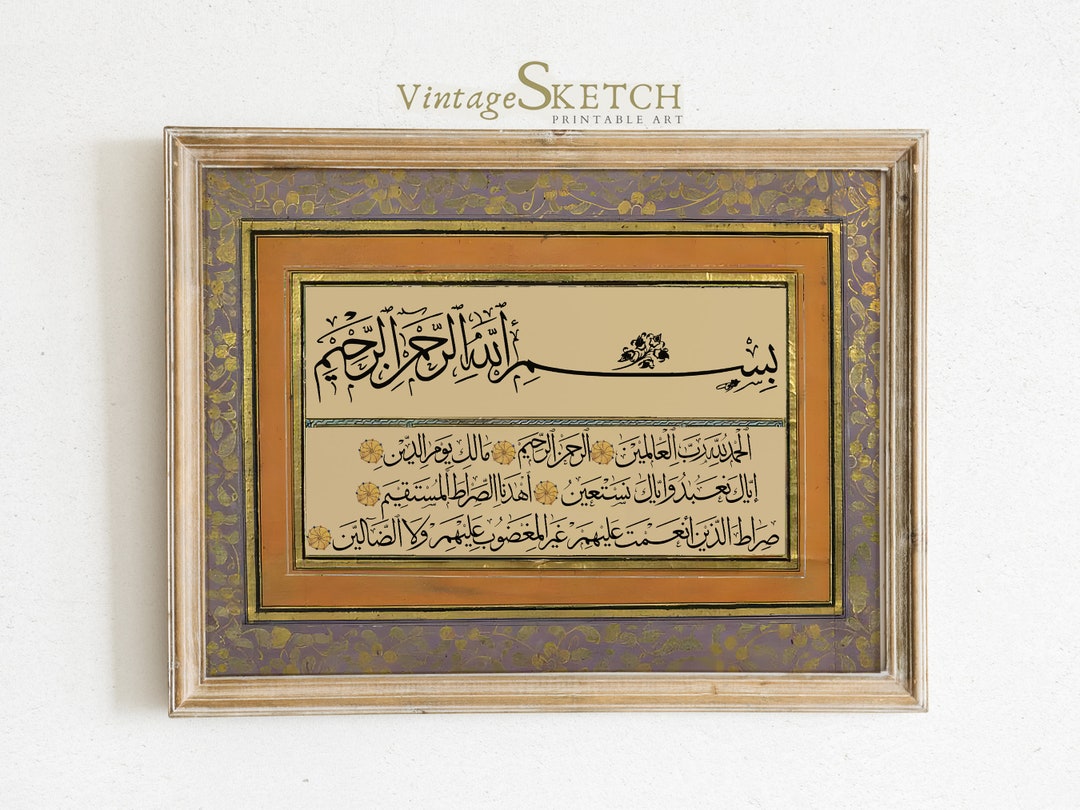 VintageSKETCH
PRINTABLE ART
بِسْمِ ٱللَّهِ ٱلرَّحْمَٰنِ ٱلرَّحِيمِ
الحمد لله رب العالمين الرحمن الرحيم مالك يوم الدين
إياك نعبد وإياك نستعين اهدنا الصراط المستقيم
صراط الذين أنعمت عليهم غير المغضوب عليهم ولا الضالين